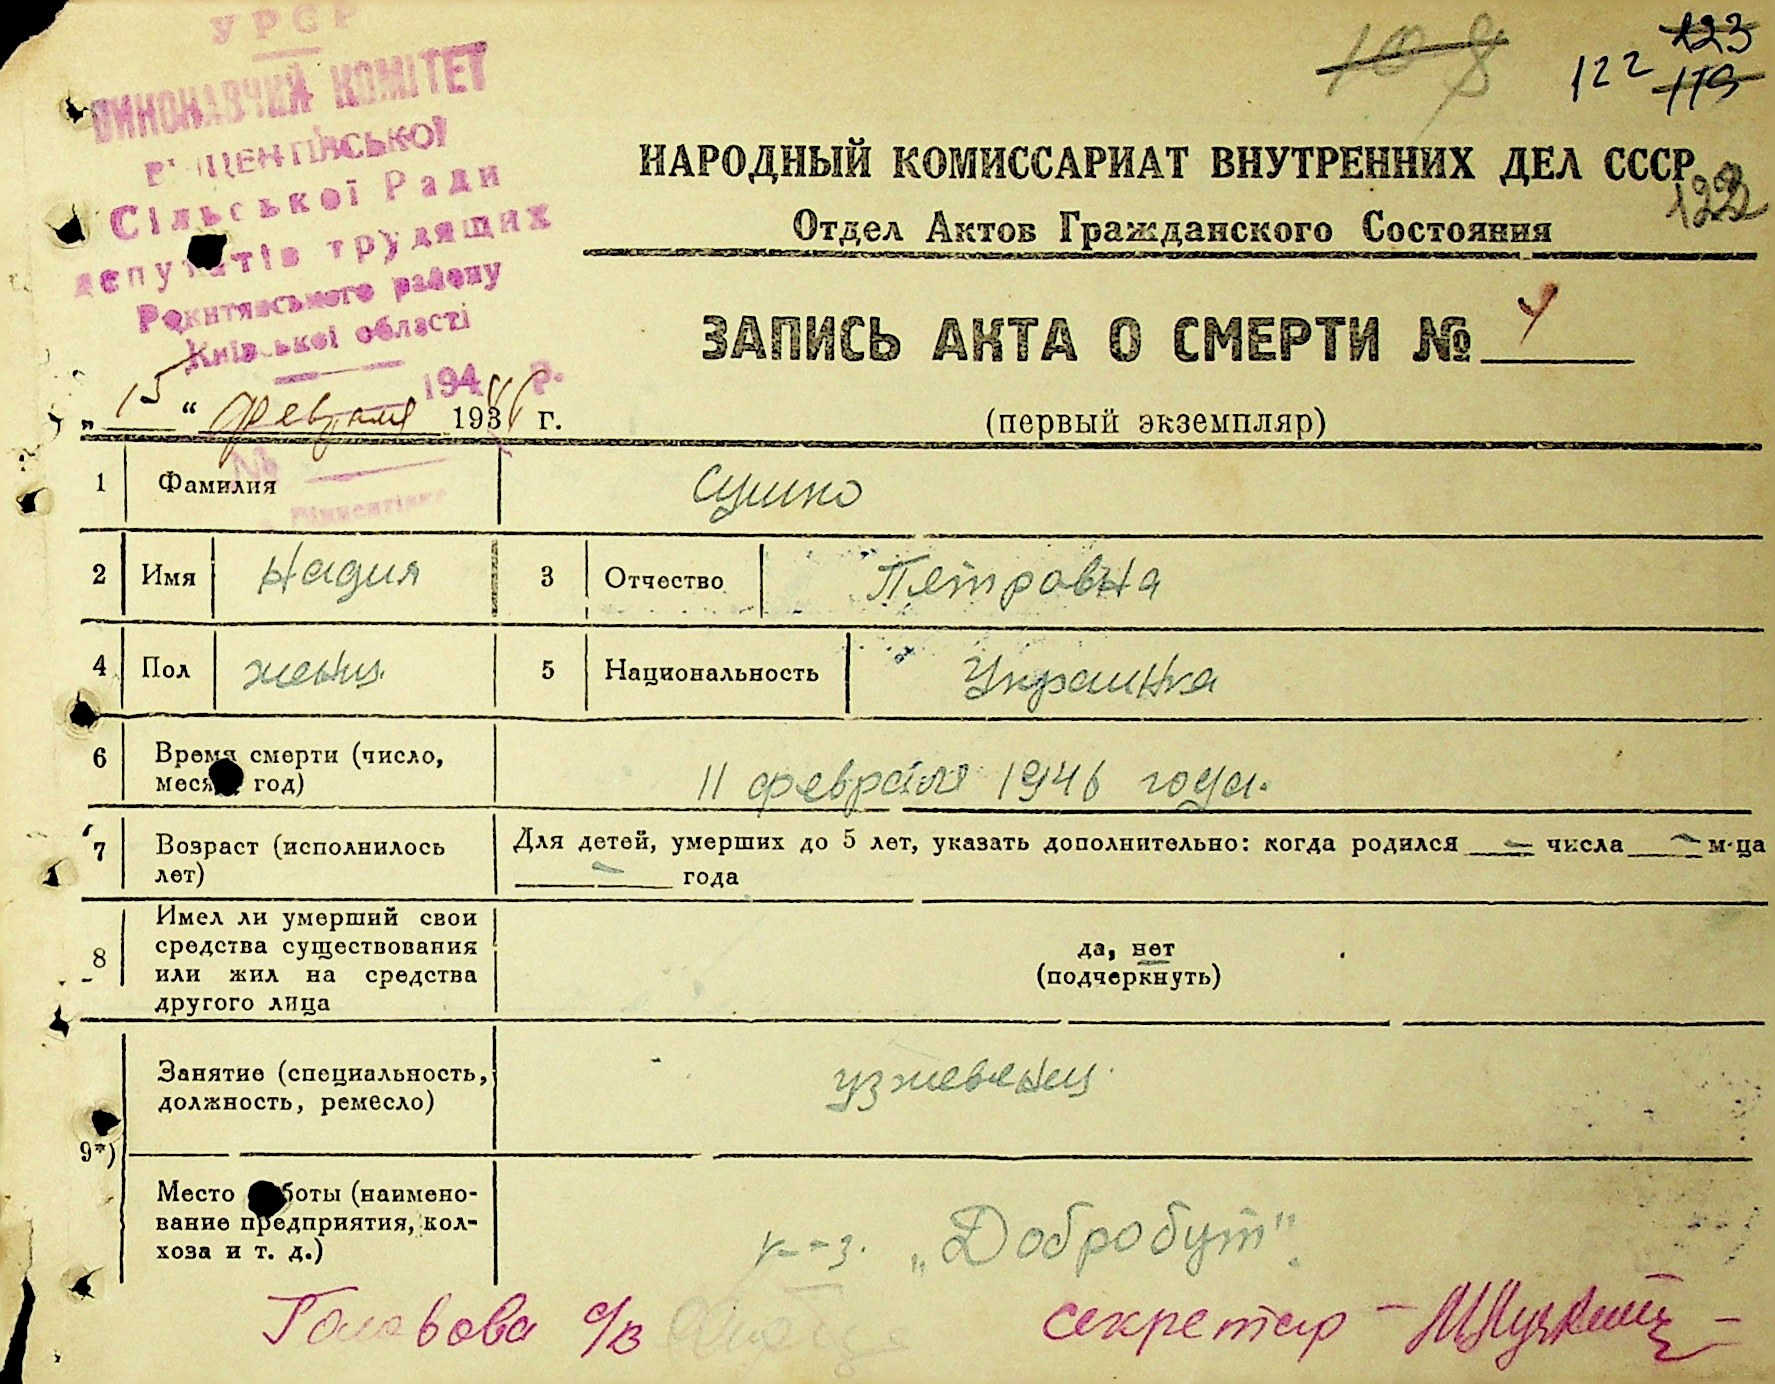 УРСР
ВИКОНАВЧИЙ КОМІТЕТ
Сільської Ради
депутатів трудящих
Рокитянського району
Київської області
194 р.
108
122
123
119
НАРОДНЫЙ КОМИССАРИАТ ВНУТРЕННИХ ДЕЛ СССР
Отдел Актов Гражданского Состояния
ЗАПИСЬ АКТА О СМЕРТИ №
„15“ февраля 193 г.
(первый экземпляр)
№
1 Фамилия Сушко
2 Имя Надия 3 Отчество Петровна
4 Пол женщ. 5 Национальность Украинка
6 Время смерти (число, месяц, год) 11 февраля 1946 года.
7 Возраст (исполнилось лет) Для детей, умерших до 5 лет, указать дополнительно: когда родился — числа — м-ца
— года
8 Имел ли умерший свои
средства существования
или жил на средства
другого лица
да, нет
(подчеркнуть)
9*) Занятие (специальность,
должность, ремесло)
Место работы (наимено-
вание предприятия, кол-
хоза и т. д.)
к-з. „Добробут".
Голова с/в секретар -